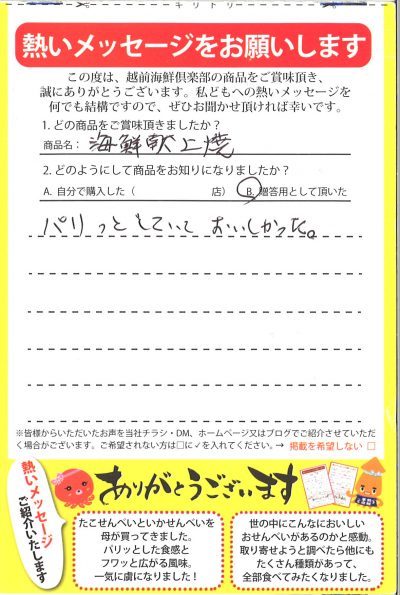 キリトリ
熱いメッセージをお願いします
この度は、越前海鮮倶楽部の商品をご賞味頂き、
誠にありがとうございます。私どもへの熱いメッセージを
何でも結構ですので、ぜひお聞かせ頂ければ幸いです。
1. どの商品をご賞味頂きましたか？
商品名： 海鮮献上焼
2. どのようにして商品をお知りになりましたか？
A. 自分で購入した（ 店） B. 贈答用として頂いた
パリっとしていて おいしかった。
※皆様からいただいたお声を当社チラシ・DM、ホームページ又はブログでご紹介させていただ
く場合がございます。ご希望されない方は□に✓を入れてください。→ 掲載を希望しない □
熱いメッセージ
ご紹介いたします
ありがとうございます
たこせんべいといかせんべいを
母が買ってきました。
パリッとした食感と
フワッと広がる風味。
一気に虜になりました！
世の中にこんなにおいしい
おせんべいがあるのかと感動。
取り寄せようと調べたら他にも
たくさん種類があって、
全部食べてみたくなりました。